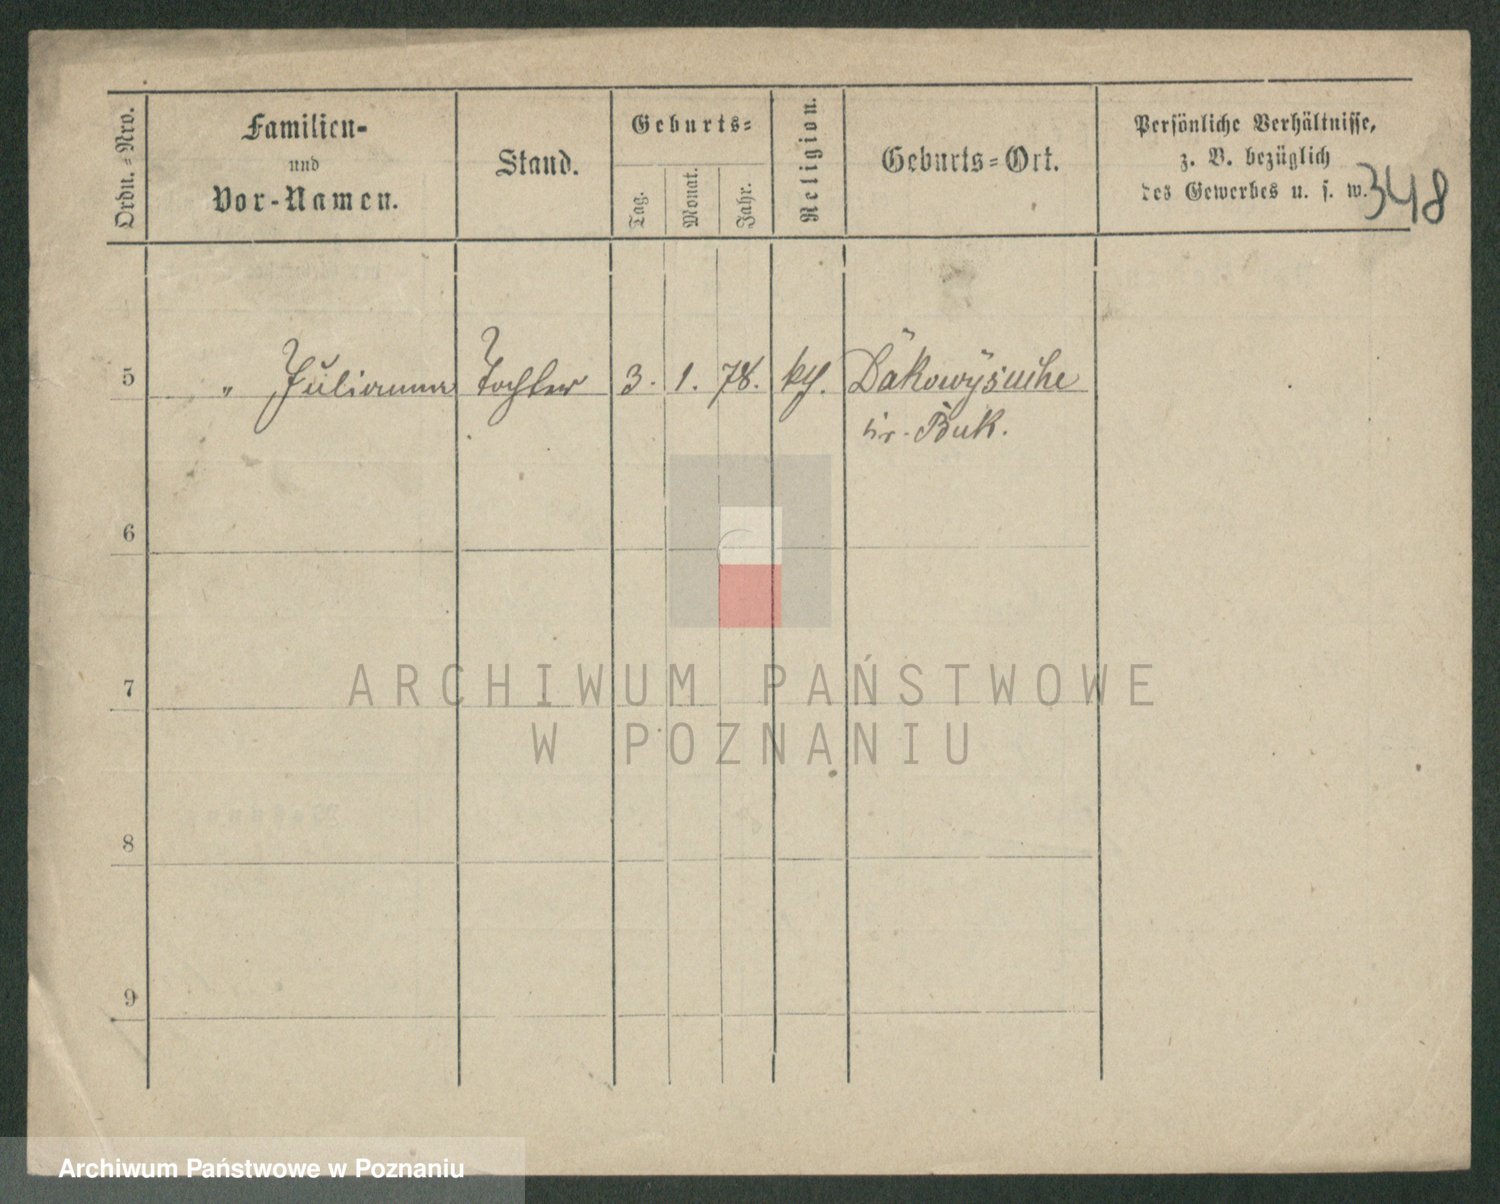 Ordn.-Nro.
Familien-
und
Vor-Namen.
Stand.
Geburts-
Tag.
Monat.
Jahr.
Religion.
Geburts-Ort.
Persönliche Verhältnisse,
z. B. bezüglich
des Gewerbes u. s. w.
348
5 " Julianna Tochter 3. 1. 78. kth.
Kr. Buk.
6
7
8
9
ARCHIWUM PAŃSTWOWE
W POZNANIU
Archiwum Państwowe w Poznaniu